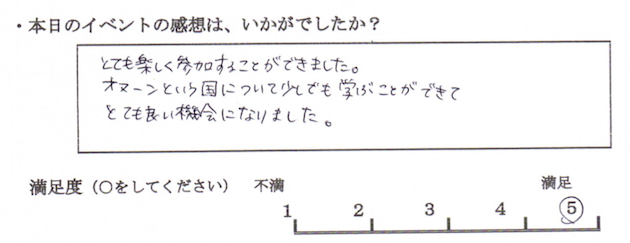 ・本日のイベントの感想は、いかがでしたか？
とても楽しく参加することができました。
オマーンという国について少しでも学ぶことができて
とても良い機会になりました。
満足度（○をしてください） 不満 満足
1 2 3 4 5